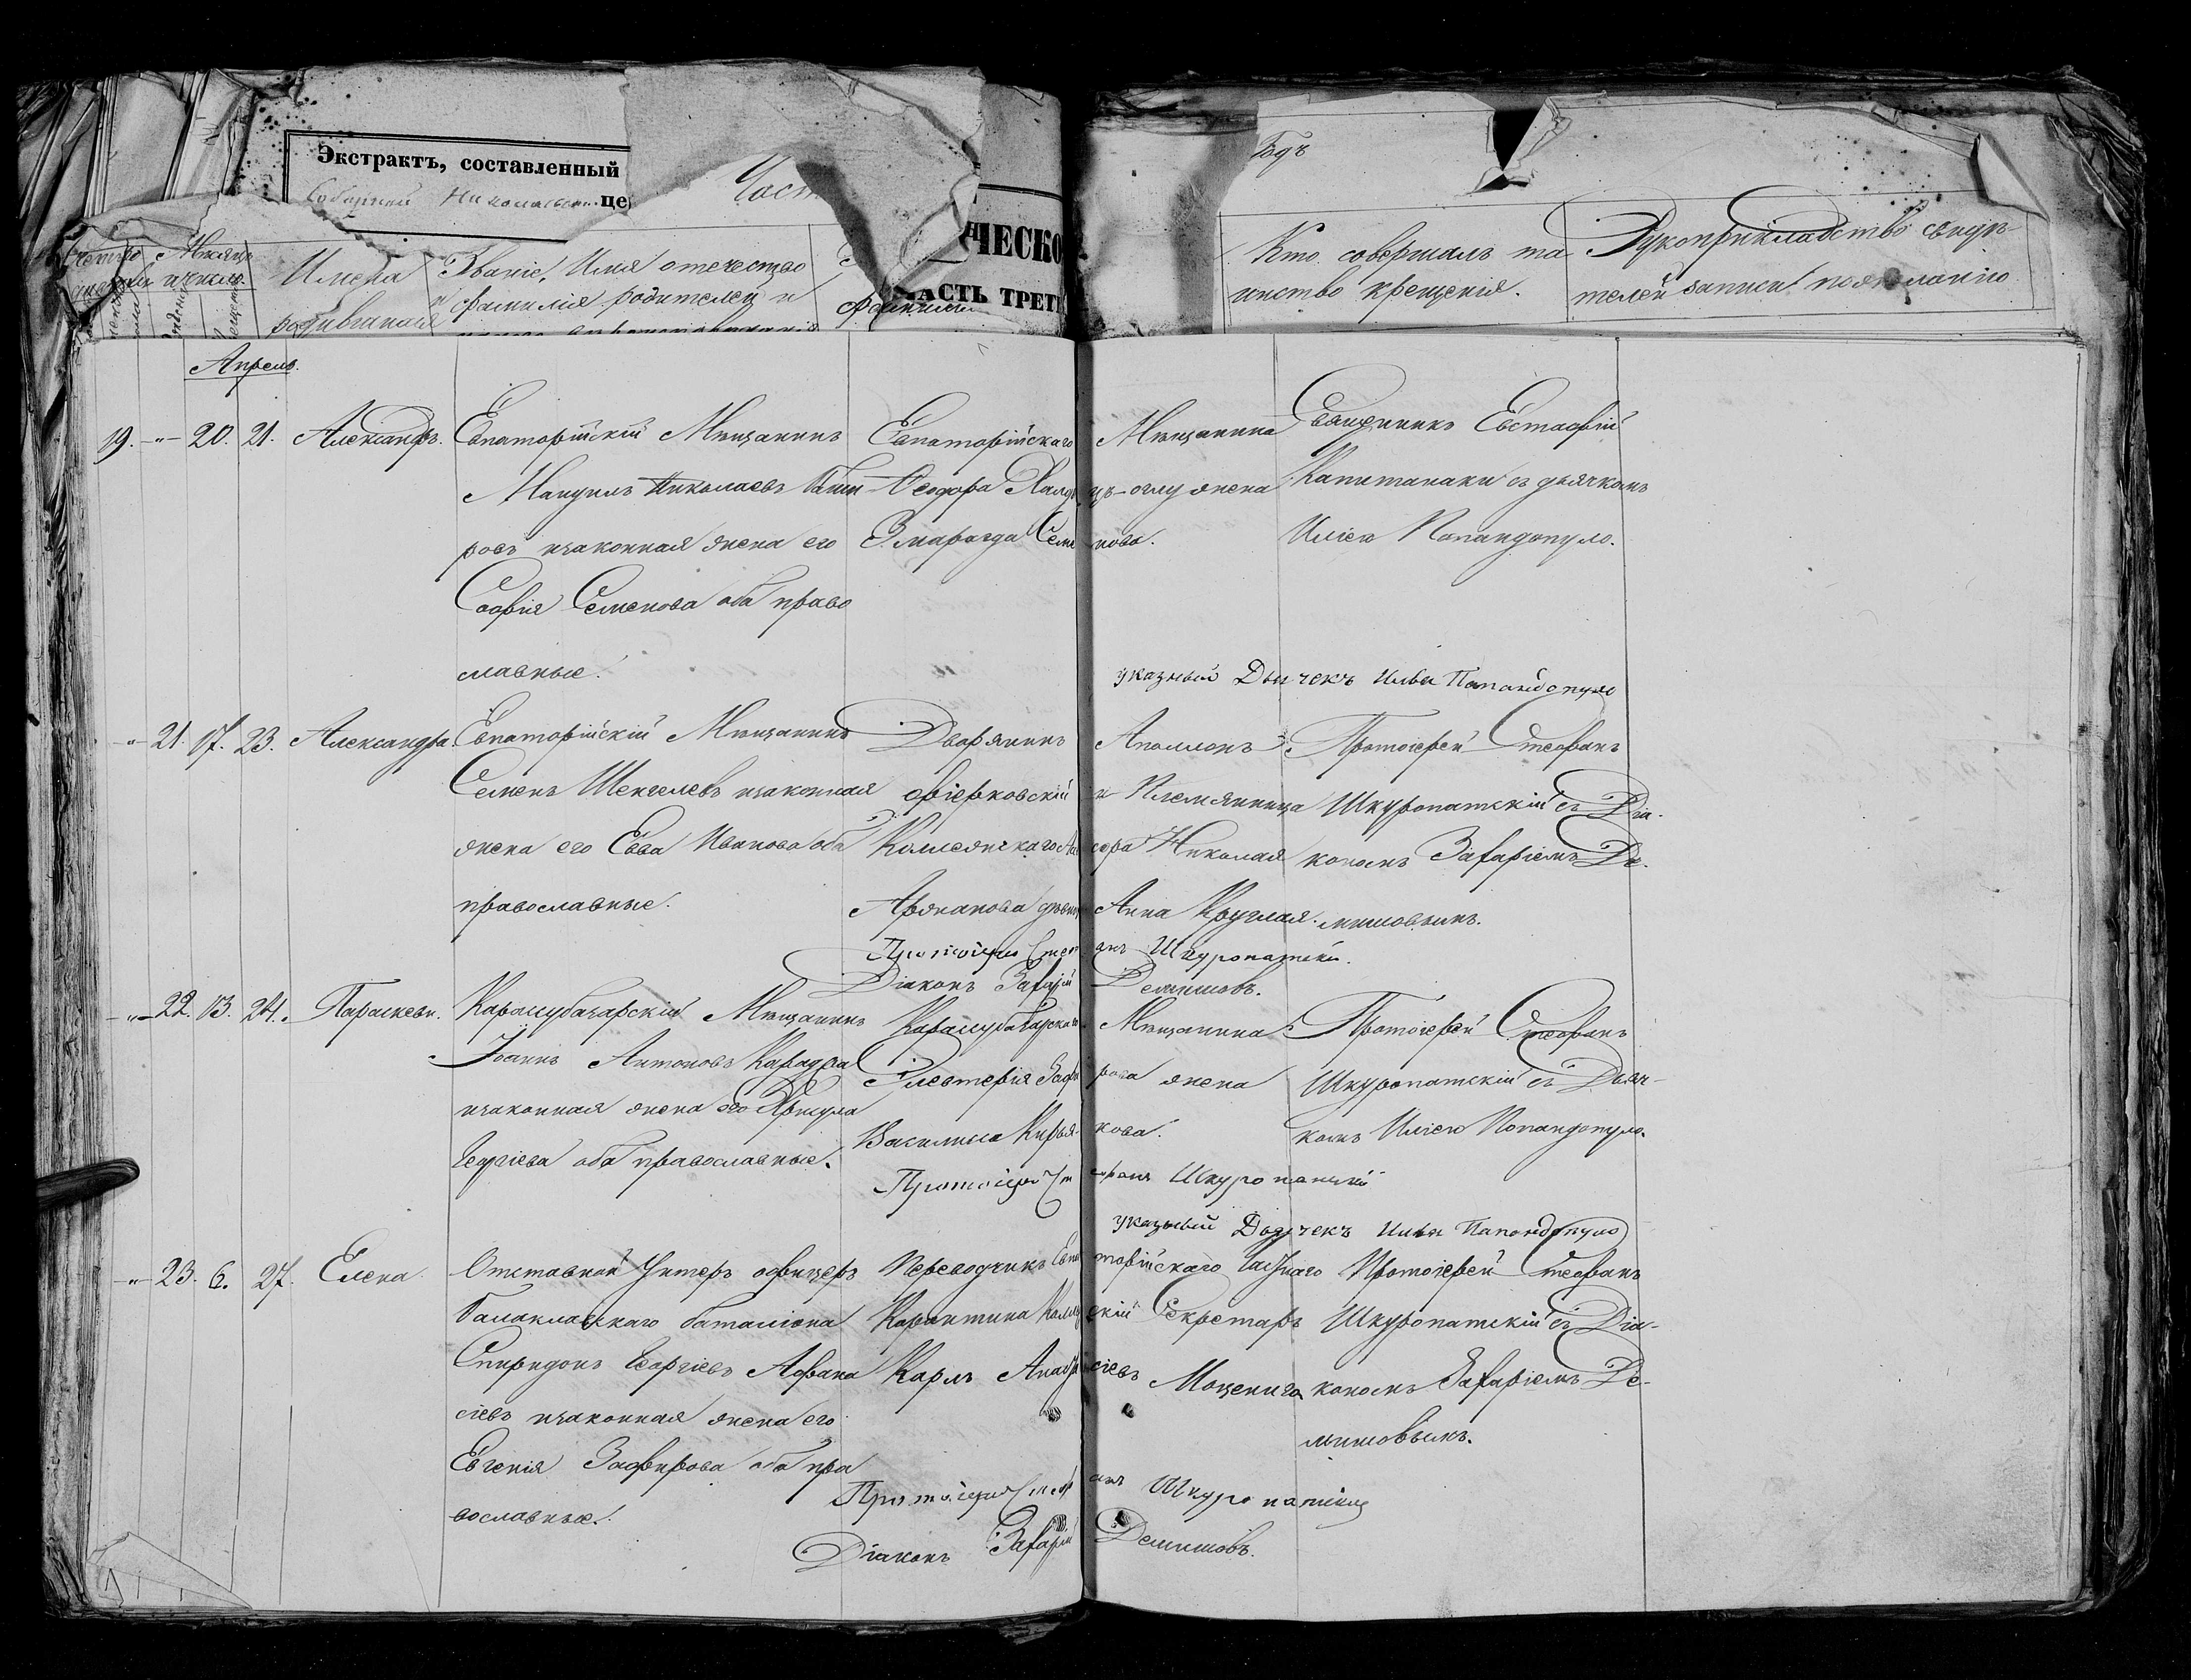 Экстрактъ, составленный
Соборной Николаевск. це
Част
ЧЕСКО
ЧАСТЬ ТРЕТ
Годъ
Мѣсяцъ и число.
Имена родившихся
Званіе, Имя отечество и фамилія родителей и
фамилія
Кто совершалъ та
инство крещенія.
Рукоприкладство свидѣ
телей записи по желанію
Апрель.
19. -"- 20. 21. Александръ.
Евпаторійскій Мѣщанинъ
Мануилъ Николаевъ
ровъ изаконная жена его
Софія Семенова оба право
славные.
Евпаторійскаго Мѣщанина
Ѳеодора оглу жена
Змарагда Семенова.
Священникъ Евстафій
Капитанаки съ дьячкомъ
Иліею Попандопуло.
указный Дьячекъ Илья Папандопуло
-"- 21. 17. 23. Александра.
Евпаторійскій Мѣщанинъ
Семенъ Шенгелевъ изаконная
жена его Евва Иванова оба
православные.
Дворянинъ Аполлонъ
офіерковскій и Племянница
Николая
Анна Круглая.
Протоіерей Стефанъ
Шкуропатскій съ Діа-
кономъ Захаріемъ Де-
мишовымъ.
Протоіерей Стефанъ Шкуропатскій.
Діаконъ Захарій Демишовъ.
-"- 22. 13. 24. Параскеви.
Карасубазарскій Мѣщанинъ
Іоаннъ Антоновъ
изаконная жена его
Георгіева оба православные.
Карасубазарскаго Мѣщанина
Элевтерія жена
Василиса Кирьякова.
Протоіерей Стефанъ
Шкуропатскій съ Дьяч-
комъ Иліею Попандопуло.
Протоіерей Стефанъ Шкуропатскій
указный Дьячекъ Илья Папандопуло
-"- 23. 6. 27. Елена.
Отставной Унтеръ офицеръ
балаклавскаго баталіона
Спиридонъ Георгіевъ Афана
сіевъ изаконная жена его
Евгенія Зафирова оба пра
вославные.
Переводчикъ Евпаторійскаго
Карантина Секретарь
Карлъ Моценига
Протоіерей Стефанъ
Шкуропатскій съ Діа-
кономъ Захаріемъ Де-
мишовымъ.
Протоіерей Стефанъ Шкуропатскій
Діаконъ Захарій Демишовъ.